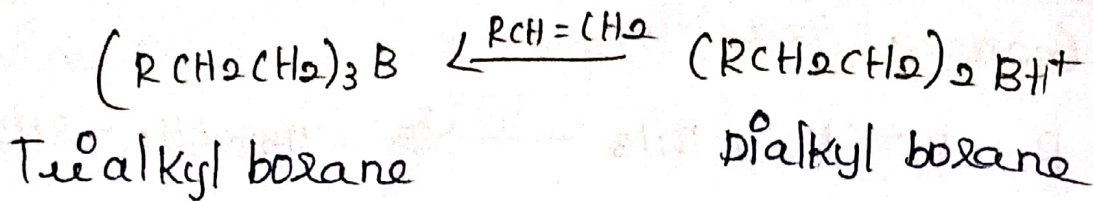 (RCH2CH2)3 B <—RCH=CH2— (RCH2CH2)2 BH+
Trialkyl borane Dialkyl borane